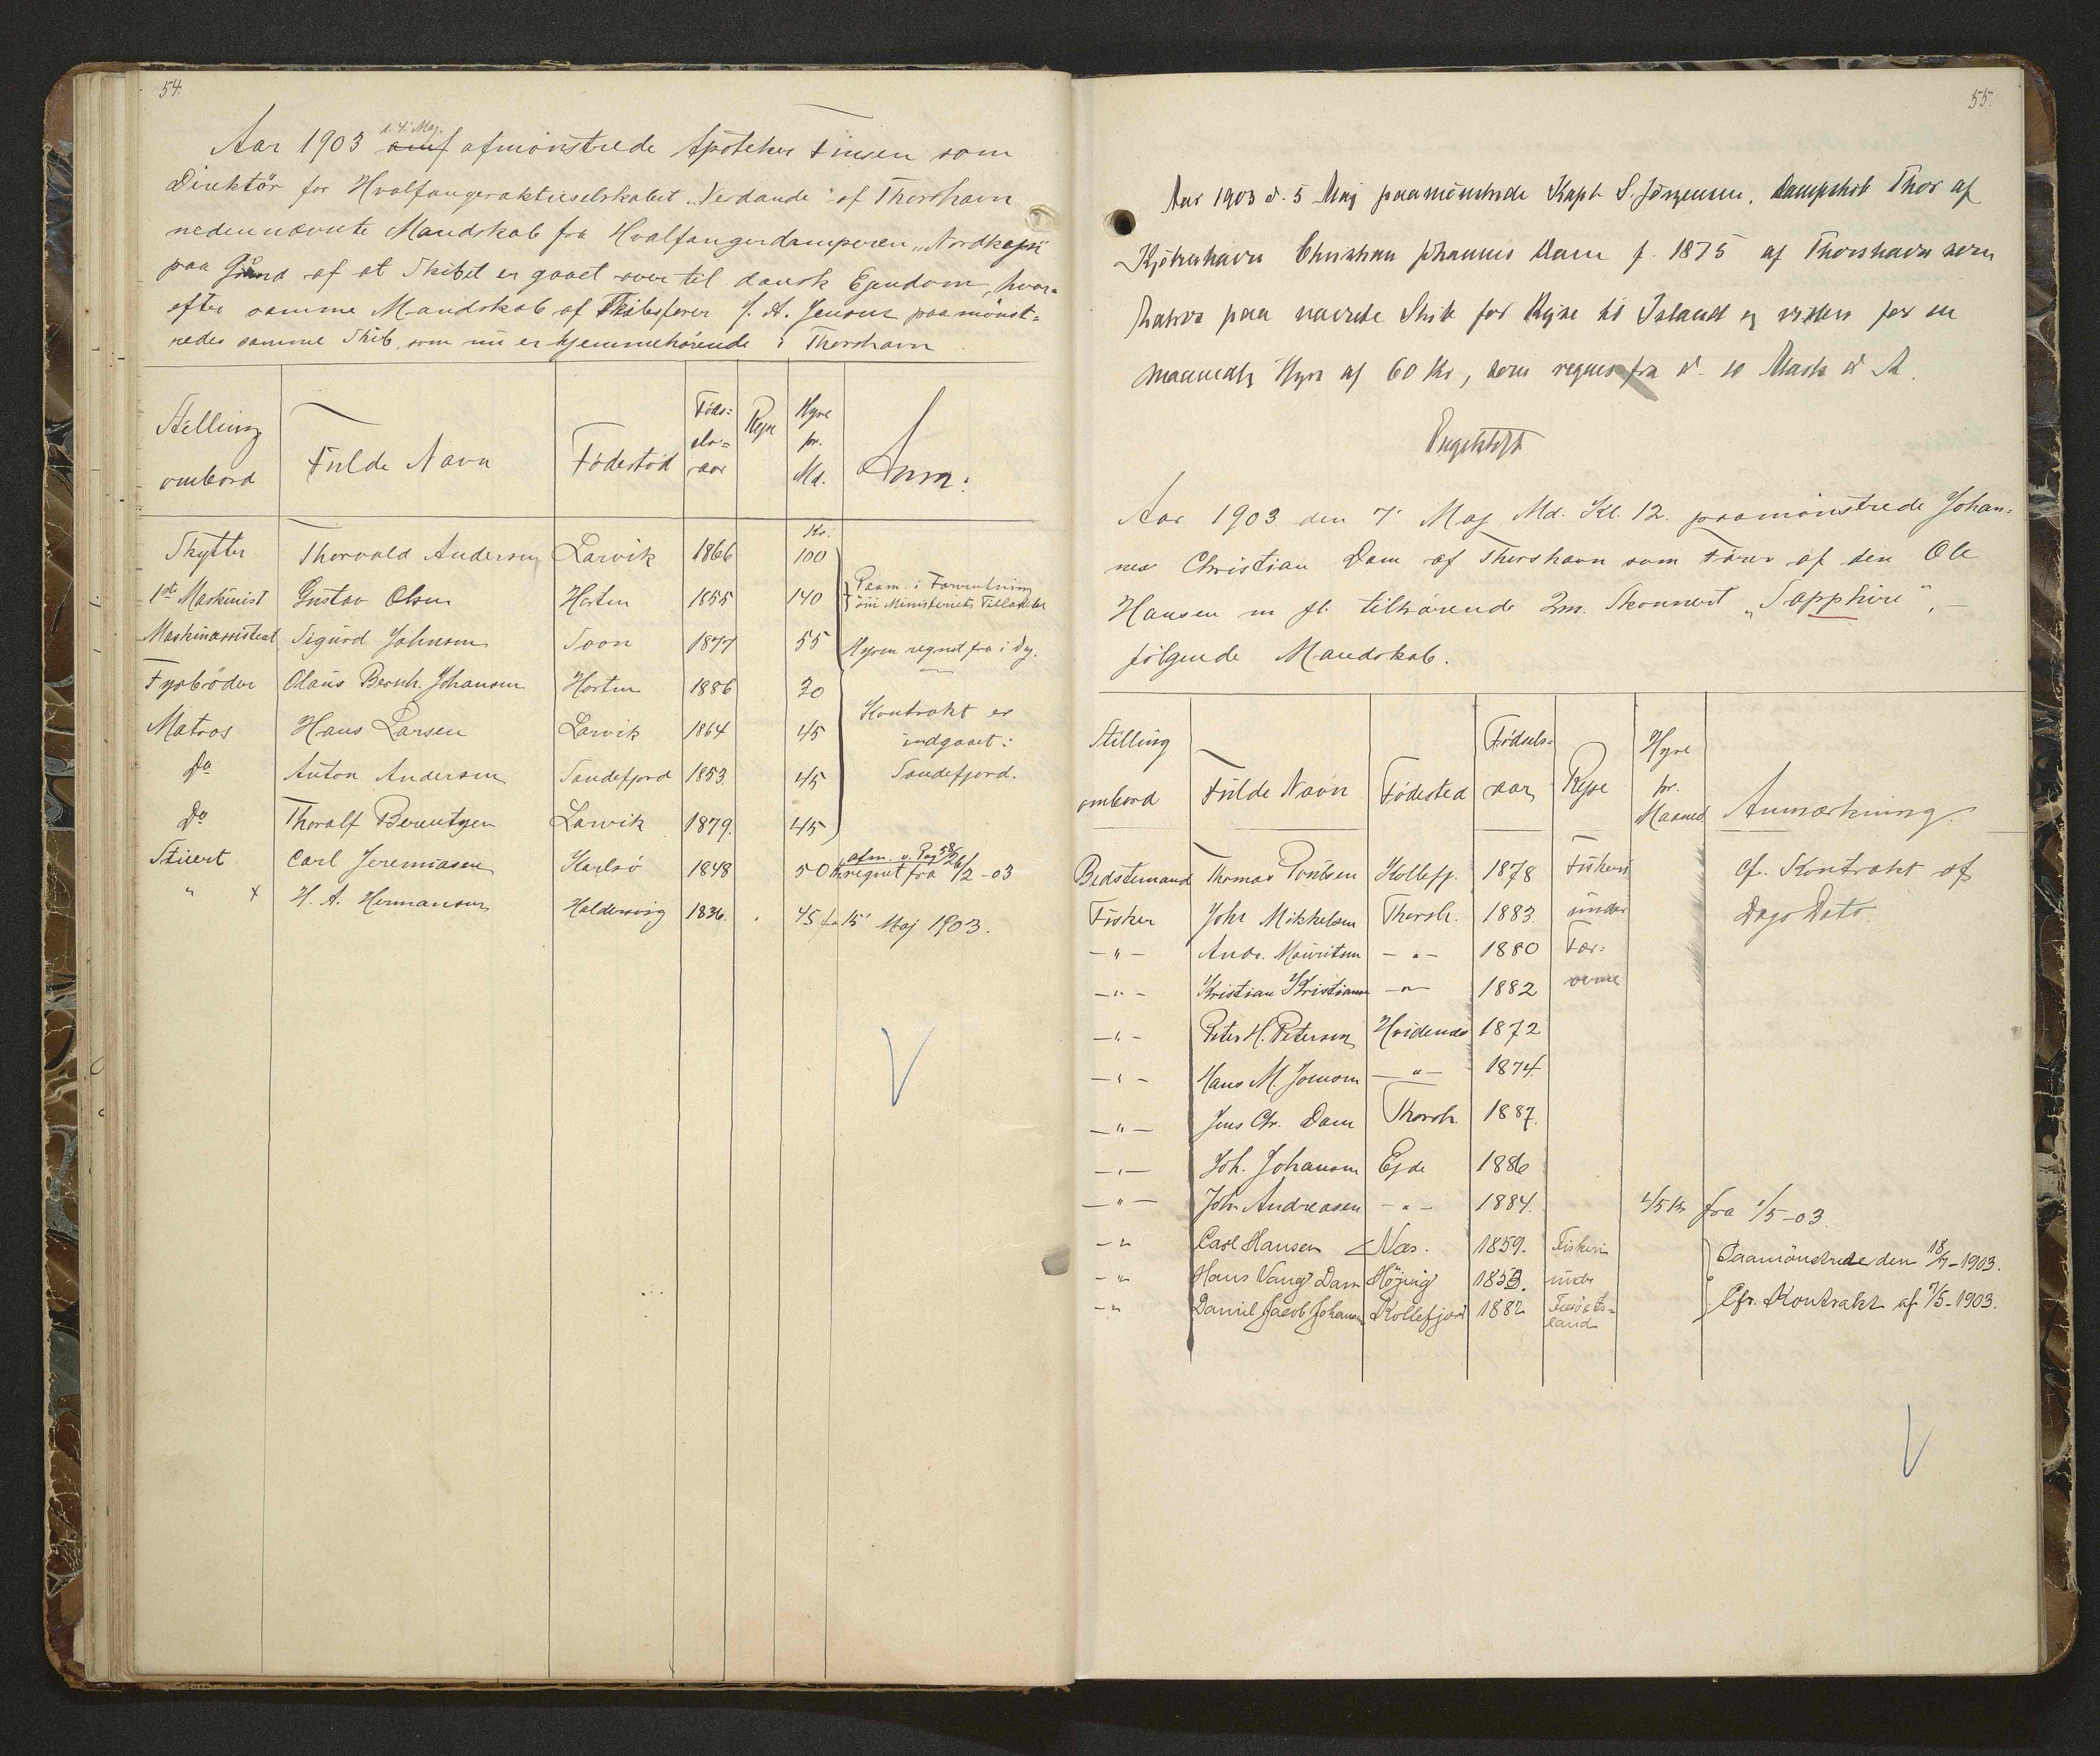 54.
Aar 1903 d. 4. Maj. afmönstrede Apoteker Finsen som
Direktör for Hvalfangeraktieselskabet „Verdande" af Thorshavn
nedennævnte Mandskab fra Hvalfangerdamperen „Nordkaperen"
paa Grund af at Skibet er gaaet over til dansk Ejendom, hvor-
efter samme Mandskab af Skibsförer J. A. Jensen paamönst-
redes samme Skib, som nu er hjemmehörende i Thorshavn
Stilling ombord | Fulde Navn | Födestod | Föds-els-aar | Rejse | Hyre pr. Md. | Anm:
Kr.
Skytter | Thorvald Andersen | Larvik | 1866 | 100
1ste Maskinist | Gustav Olsen | Horten | 1855 | 140 | Paam. i Forventning om Ministeriets Tilladelse
Maskinassistent | Sigurd Johnsen | Soon | 1877 | 55 | Hyren regnet fra i Dag.
Fyrböder | Olaus Bernh. Johansen | Horten | 1886 | 30
Matros | Hans Larsen | Larvik | 1864 | 45 | Kontrakt er indgaaet i
Do | Anton Andersen | Sandefjord | 1853 | 45 | Sandefjord.
Do | Thoralf Berentzen | Larvik | 1879. | 45
Stuert | Carl Jeremiasen | Karlsö | 1848 | 50 Kr regnet fra 26/2-03 | afm. v. Pag 58
" x | H. A. Hermansen | Haldersvig | 1836. | 45 fra 15' Maj 1903.
55.
Aar 1903 d. 5 Maj paamönstrede Kapt S. Jörgensen, Dampskib Thor af
Kjöbenhavn Christian Johannes Dam f. 1875 af Thorshavn som
Matros paa nævnte Skib for Rejse til Island og videre for en
maanedlig Hyre af 60 Kr, som regnes fra d. 10 Marts d A.
Engelstoft
Aar 1903 den 7' Maj Md. Kl. 12. paamönstrede Johan-
nes Christian Dam af Thorshavn som Förer af den Ole
Hansen m fl. tilhörende 2m. Skonnert „Sapphire",
fölgende Mandskab.
Stilling ombord | Fulde Navn | Födested | Födsels-aar | Rejse | Hyre pr. Maaned | Anmærkning
Bedstemand | Thomas Poulsen | Kollefj. | 1878 | Fiskeri | cf. Kontrakt af
Fisker | Joh. Mikkelsen | Thorsh. | 1883. | under | Dags Dato.
— " — | Andr. Mouritsen | — " — | 1880 | Fær-
— " — | Kristian Kristiansen | — " — | 1882 | öerne
— " — | Peter H. Petersen | Hvidenæs | 1872
— " — | Hans M. Joensen | — " — | 1874.
— " — | Jens Chr. Dam | Thorsh. | 1887.
— " — | Joh. Johansen | Ejde | 1886
— " — | Joh. Andreasen | — " — | 1884. | 45 Kr | fra 1/5-03.
— " | Carl Hansen | Næs. | 1859. | Fiskeri | Paamönstrede den 18/7-1903.
— " | Hans Vang Dam | Höjvig | 1853. | under
— " | Daniel Jacob Johansen | Kollefjord | 1882 | Færö & Is-land | Cfr. Kontrakt af 7/5-1903.